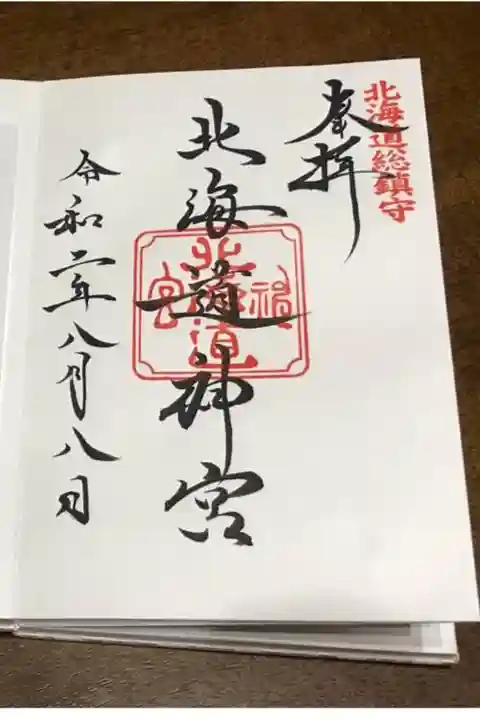 北海道総鎮守
奉拝
北海道神宮
令和二年八月八日